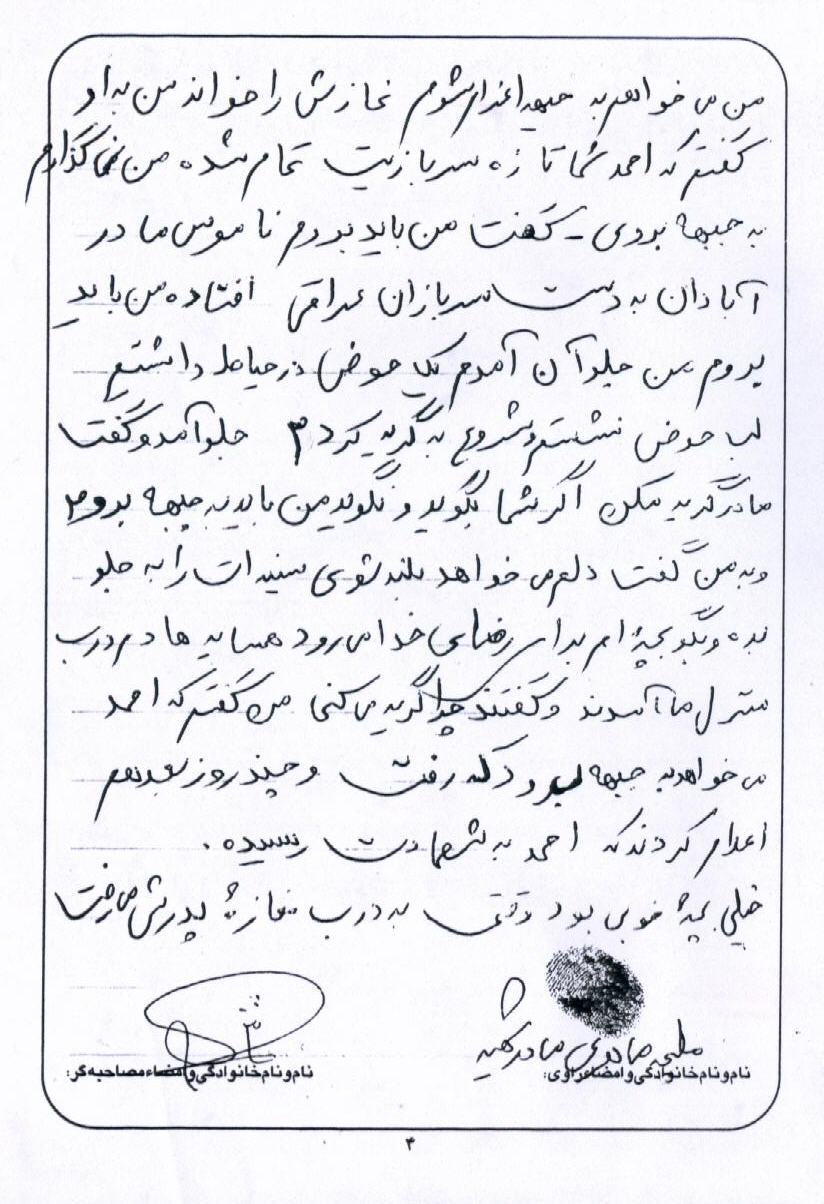 من می خواهم به جبهه اعزام شوم نمازش را خواند من به او
گفتم که احمد شما تازه سربازیت تمام شده من نمی گذارم
به جبهه بروی - گفت من باید بروم ناموس ما در
آبادان به دست سربازان عراقی افتاده من باید
بروم من جلو آن آمدم یک حوض در حیاط داشتیم
لب حوض نشستم و شروع به گریه کردم جلو آمد و گفت
مادر گریه نکن اگر شما بگوید و نگوید من باید به جبهه بروم
و به من گفت دلم می خواهد بلند شوی سینه ات را به جلو
بده و بگو بچۀ ام برای رضای خدا می رود همسایه ها دم درب
منزل ما آمدند و گفتند چرا گریه می کنی من گفتم که احمد
می خواهد به جبهه برود که رفت و چند روز بعد هم
اعلام کردند که احمد به شهادت رسیده .
خیلی بچۀ خوبی بود وقتی به درب مغازۀ پدرش می رفت
ملیحه مادر شهید
نام و نام خانوادگی و امضاء راوی:
نام و نام خانوادگی و امضاء مصاحبه گر:
۴